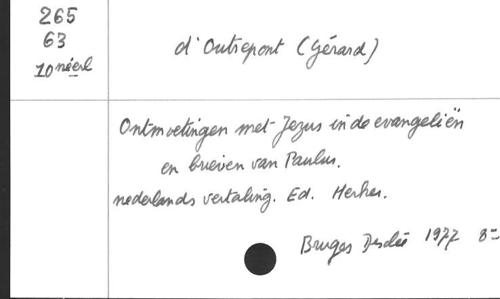 265
63
10 néerl
d'Outrepont (Gérard)
Ontmoetingen met Jezus in de evangeliën
en brieven van Paulus.
nederlands vertaling. Ed.
Bruges Desclée 1977 8=